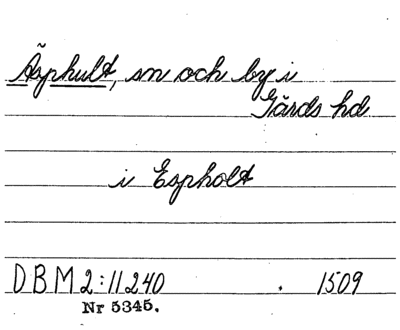 Äsphult, sn och by i
Gärds hd
i Espholt
DBM 2:11240 . 1509
Nr 5345.